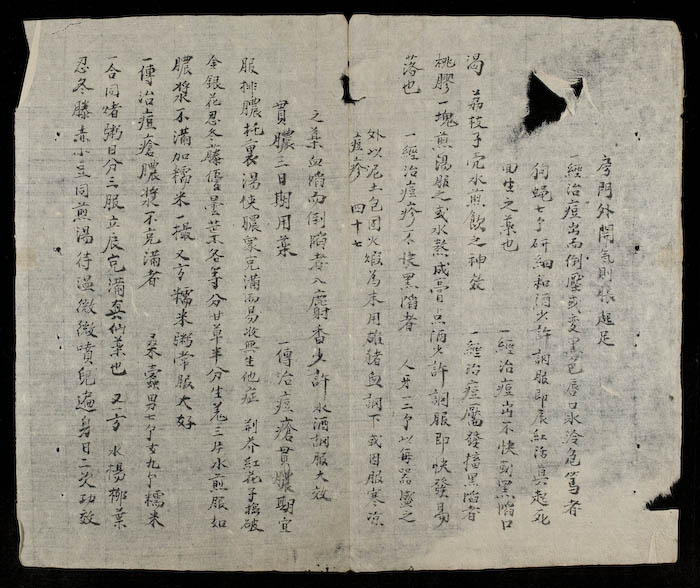 房門外聞氣則膿起足
一經治痘出而倒壓或变黑色唇口氷冷危篤者
狗蝇七个研細和酒少許調服即辰紅活真起死
囬生之葉也　一經治痘出不快或黑陷口
渴　荔枝子壳水煎飲之神效　一經治痘屬發搐黑陷者
桃膠一塊煎湯服之或水熬成膏只酒少許調服即快發易
落也　一經治痘疹不快黑陷者　人牙一二个以每器盛之
外以泥土包固火煅為末用雄猪血調下或因服寒凉
痘疹　四十七
之藥血凝而倒陷者入麝香少許水酒調服大效
貫膿三日期用葉　一傳治痘瘡貫膿期宜
服排膿托裏湯使膿漿充滿而易收無生他症　荆芥紅花子擣破
金銀花忍冬藤僵曇葉冬等分甘草半分生羌三片水煎服如
膿漿不滿加糯米一撮又方糯米粥常服大好
一傳治痘瘡膿漿不充滿者　桑蠹男七个女九个糯米
一合同煮粥日分三服立辰宛滿真仙葉也　又方　水楊柳葉
忍冬藤赤小豆同煎湯待温微微噴兒遍身日二次功效